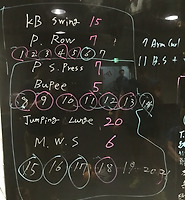 KB Swing 15
P. Row 7
1 2 3 4 5 6 7
P S. Press 7
Bupee 5
8 9 10 11 12 13 14
Jumping Lunge 20
M.W.S 6
15 16 17 18 19 20 2
7 Arm Curl
11 B.S +